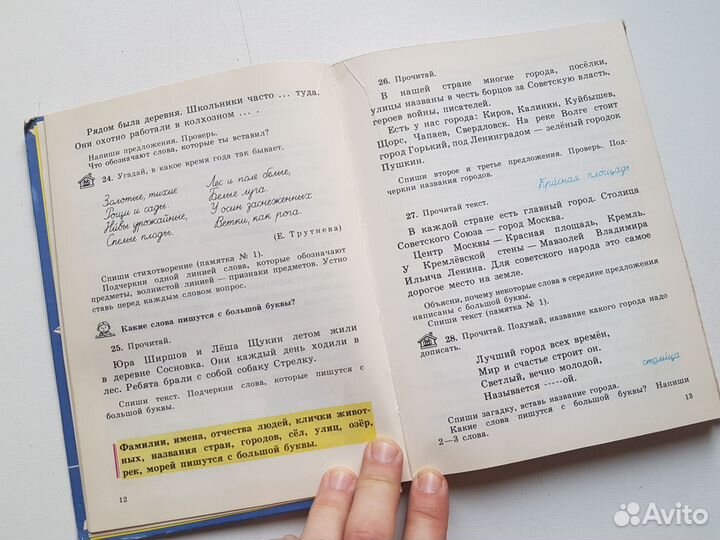 Рядом была деревня. Школьники часто ... туда.
Они охотно работали в колхозном ... .
Напиши предложения. Проверь.
Что обозначают слова, которые ты вставил?
24. Угадай, в какое время года так бывает.
Золотые, тихие
Рощи и сады.
Нивы урожайные,
Спелые плоды.
Лес и поле белые,
Белые луга.
У осин заснеженных
Ветки, как рога.
(Е. Трутнева)
Спиши стихотворение (памятка № 1).
Подчеркни одной линией слова, которые обозначают
предметы, волнистой линией — признаки предметов. Устно
ставь перед каждым словом вопрос.
Какие слова пишутся с большой буквы?
25. Прочитай.
Юра Ширшов и Лёша Щукин летом жили
в деревне Сосновка. Они каждый день ходили в
лес. Ребята брали с собой собаку Стрелку.
Спиши текст. Подчеркни слова, которые пишутся с
большой буквы.
Фамилии, имена, отчества людей, клички живот-
ных, названия стран, городов, сёл, улиц, озёр,
рек, морей пишутся с большой буквы.
12
26. Прочитай.
В нашей стране многие города, посёлки,
улицы названы в честь борцов за Советскую власть,
героев войны, писателей.
Есть у нас города: Киров, Калинин, Куйбышев,
Щорс, Чапаев, Свердловск. На реке Волге стоит
город Горький, под Ленинградом — зелёный городок
Пушкин.
Спиши второе и третье предложения. Проверь. Под-
черкни названия городов.
Красная площадь
27. Прочитай текст.
В каждой стране есть главный город. Столица
Советского Союза — город Москва.
Центр Москвы — Красная площадь, Кремль.
У Кремлёвской стены — Мавзолей Владимира
Ильича Ленина. Для советского народа это самое
дорогое место на земле.
Объясни, почему некоторые слова в середине предложения
написаны с большой буквы.
Спиши текст (памятка № 1).
28. Прочитай. Подумай, название какого города надо
дописать.
Лучший город всех времён,
Мир и счастье строит он.
Светлый, вечно молодой,
Называется -----ой.
столица
Спиши загадку, вставь название города.
Какие слова пишутся с большой буквы? Напиши
2—3 слова.
13
Avito